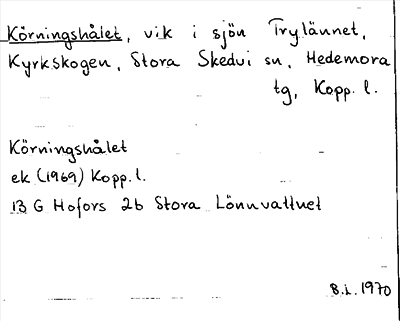 Körningshålet, vik i sjön Trylännet,
Kyrkskogen, Stora Skedvi sn, Hedemora
tg, Kopp. l.
Körningshålet
ek (1969) Kopp. l.
13 G Hofors 2b Stora Lönnvattnet
B.L. 1970